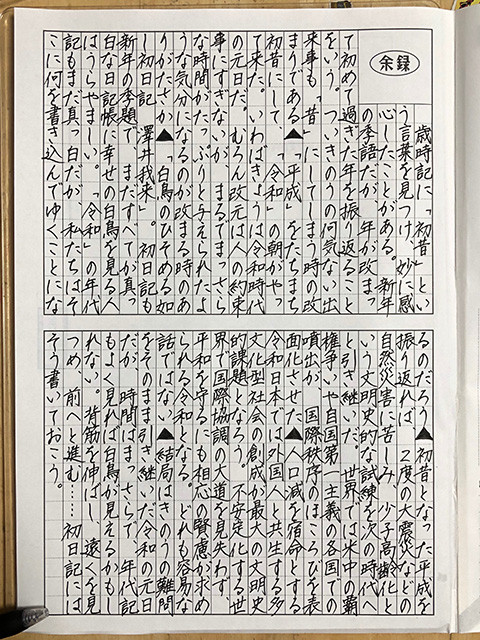 余録
歳時記に「初昔」とい
う言葉を見つけ、妙に感
心したことがある。新年
の季語だが、年が改まっ
て初めて過ぎた年を振り返ること
をいう。ついきのうの何気ない出
来事も「昔」にしてしまう時の改
まりである▲「平成」をたちまち
初昔にして、「令和」の朝がやっ
て来た。いわばきょうは令和時代
の元日だ。むろん改元は人の約束
事にすぎないが、まるでまっさら
な時間がたっぷりと与えられたよ
うな気分になるのが改まる時のあ
りがたさか▲「白鳥のひそめる如
し初日記 澤井我来」。初日記も
新年の季題で、まだすべてが真っ
白な日記帳に幸せの白鳥を見る人
はうらやましい。「令和」の年代
記もまだ真っ白だが、私たちはそ
こに何を書き込んでゆくことにな
るのだろう▲初昔となった平成を
振り返れば、2度の大震災などの
自然災害に苦しみ、少子高齢化と
いう文明史的な試練を次の時代へ
と引き継いだ。世界では米中の覇
権争いや自国第一主義の各国での
噴出が、国際秩序のほころびを表
面化させた▲人口減を宿命とする
令和日本では外国人と共生する多
文化型社会の創成が最大の文明史
的課題となろう。不安定化する世
界で国際協調の大道を見失わず、
平和を守るにも相応の賢慮が求め
られる令和となる。どれも容易な
話ではない▲結局はきのうの難問
をそのまま引き継いだ令和の元日
だが、時間はまっさらで、年代記
もよく見れば白鳥が見えるかもし
れない。背筋を伸ばし、遠くを見
つめ、前へと進む……初日記には
そう書いておこう。